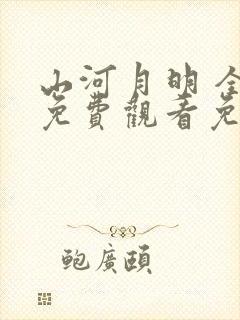 山河月明全
免費觀看免
鲍廣頤